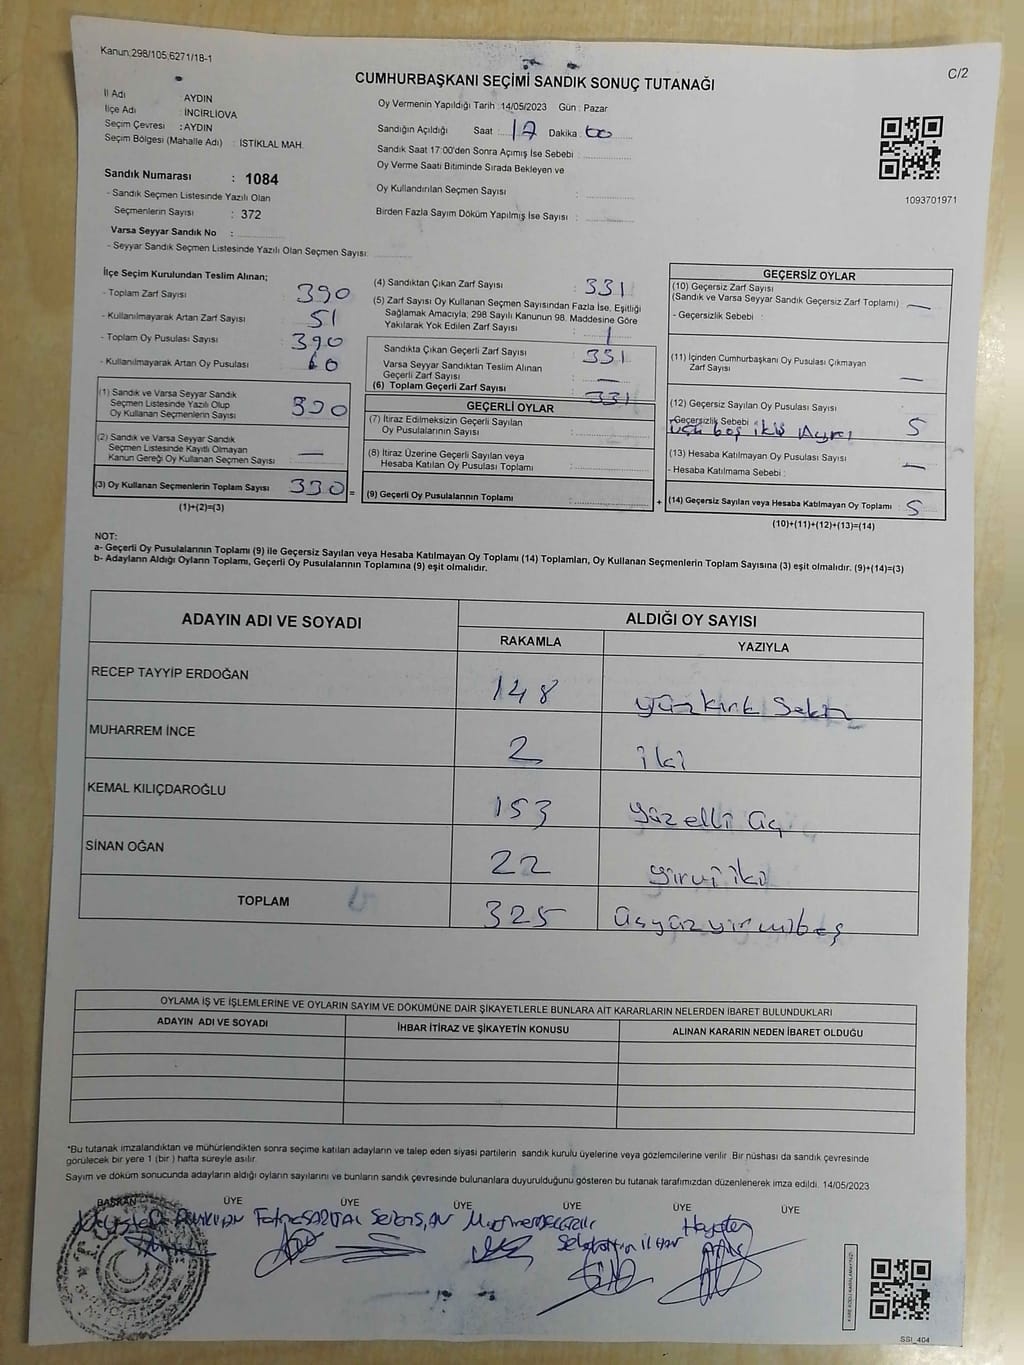 Kanun:298/105,6271/18-1
C/2
CUMHURBAŞKANI SEÇİMİ SANDIK SONUÇ TUTANAĞI
İl Adı : AYDIN
İlçe Adı : İNCİRLİOVA
Seçim Çevresi : AYDIN
Seçim Bölgesi (Mahalle Adı) : İSTİKLAL MAH.
Sandık Numarası : 1084
- Sandık Seçmen Listesinde Yazılı Olan
Seçmenlerin Sayısı : 372
Varsa Seyyar Sandık No :
- Seyyar Sandık Seçmen Listesinde Yazılı Olan Seçmen Sayısı:
Oy Vermenin Yapıldığı Tarih :14/05/2023 Gün : Pazar
Sandığın Açıldığı Saat : 17 Dakika : 00
Sandık Saat 17:00'den Sonra Açımış İse Sebebi :
Oy Verme Saati Bitiminde Sırada Bekleyen ve
Oy Kullandırılan Seçmen Sayısı :
Birden Fazla Sayım Döküm Yapılmış İse Sayısı :
1093701971
İlçe Seçim Kurulundan Teslim Alınan;
- Toplam Zarf Sayısı : 390
- Kullanılmayarak Artan Zarf Sayısı : 51
- Toplam Oy Pusulası Sayısı : 390
- Kullanılmayarak Artan Oy Pusulası : 60
(1) Sandık ve Varsa Seyyar Sandık
Seçmen Listesinde Yazılı Olup
Oy Kullanan Seçmenlerin Sayısı : 330
(2) Sandık ve Varsa Seyyar Sandık
Seçmen Listesinde Kayıtlı Olmayan
Kanun Gereği Oy Kullanan Seçmen Sayısı : —
(3) Oy Kullanan Seçmenlerin Toplam Sayısı : 330 =
(1)+(2)=(3)
(4) Sandıktan Çıkan Zarf Sayısı : 331
(5) Zarf Sayısı Oy Kullanan Seçmen Sayısından Fazla İse, Eşitliği
Sağlamak Amacıyla; 298 Sayılı Kanunun 98. Maddesine Göre
Yakılarak Yok Edilen Zarf Sayısı : 1
Sandıkta Çıkan Geçerli Zarf Sayısı : 331
Varsa Seyyar Sandıktan Teslim Alınan
Geçerli Zarf Sayısı : —
(6) Toplam Geçerli Zarf Sayısı : 331
GEÇERLİ OYLAR
(7) İtiraz Edilmeksizin Geçerli Sayılan
Oy Pusulalarının Sayısı :
(8) İtiraz Üzerine Geçerli Sayılan veya
Hesaba Katılan Oy Pusulası Toplamı :
(9) Geçerli Oy Pusulalarının Toplamı : +
GEÇERSİZ OYLAR
(10) Geçersiz Zarf Sayısı
(Sandık ve Varsa Seyyar Sandık Geçersiz Zarf Toplamı) : —
- Geçersizlik Sebebi :
(11) İçinden Cumhurbaşkanı Oy Pusulası Çıkmayan
Zarf Sayısı : —
(12) Geçersiz Sayılan Oy Pusulası Sayısı : 5
- Geçersizlik Sebebi : üçü boş ikisi Ayrı
(13) Hesaba Katılmayan Oy Pusulası Sayısı : —
- Hesaba Katılmama Sebebi :
(14) Geçersiz Sayılan veya Hesaba Katılmayan Oy Toplamı : 5
(10)+(11)+(12)+(13)=(14)
NOT:
a- Geçerli Oy Pusulalarının Toplamı (9) ile Geçersiz Sayılan veya Hesaba Katılmayan Oy Toplamı (14) Toplamları, Oy Kullanan Seçmenlerin Toplam Sayısına (3) eşit olmalıdır. (9)+(14)=(3)
b- Adayların Aldığı Oyların Toplamı, Geçerli Oy Pusulalarının Toplamına (9) eşit olmalıdır.
ADAYIN ADI VE SOYADI ALDIĞI OY SAYISI
RAKAMLA YAZIYLA
RECEP TAYYİP ERDOĞAN 148 yüzkırk sekiz
MUHARREM İNCE 2 iki
KEMAL KILIÇDAROĞLU 153 yüzelli üç
SİNAN OĞAN 22 yirmi iki
TOPLAM 325 üçyüzyirmibeş
OYLAMA İŞ VE İŞLEMLERİNE VE OYLARIN SAYIM VE DÖKÜMÜNE DAİR ŞİKAYETLERLE BUNLARA AİT KARARLARIN NELERDEN İBARET BULUNDUKLARI
ADAYIN ADI VE SOYADI İHBAR İTİRAZ VE ŞİKAYETİN KONUSU ALINAN KARARIN NEDEN İBARET OLDUĞU
*Bu tutanak imzalandıktan ve mühürlendikten sonra seçime katılan adayların ve talep eden siyasi partilerin sandık kurulu üyelerine veya gözlemcilerine verilir. Bir nüshası da sandık çevresinde
görülecek bir yere 1 (bir) hafta süreyle asılır.
Sayım ve döküm sonucunda adayların aldığı oyların sayılarını ve bunların sandık çevresinde bulunanlara duyurulduğunu gösteren bu tutanak tarafımızdan düzenlenerek imza edildi. 14/05/2023
BAŞKAN ÜYE ÜYE ÜYE ÜYE ÜYE ÜYE
SSI_404